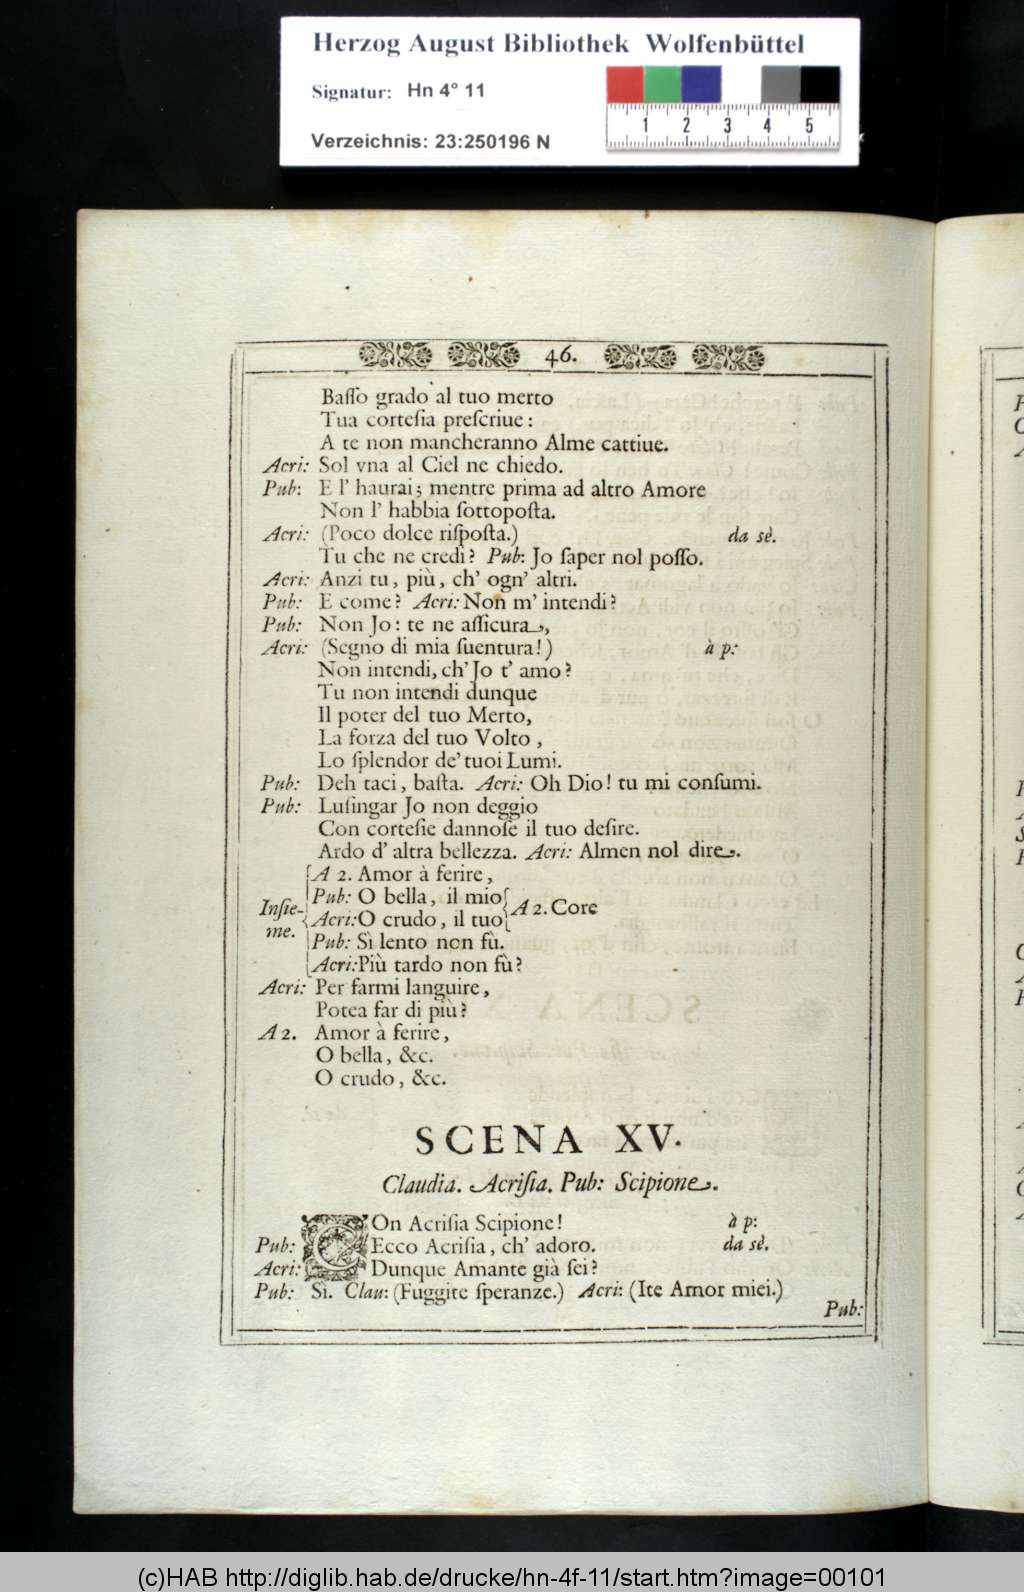 Herzog August Bibliothek Wolfenbüttel
Signatur: Hn 4° 11
Verzeichnis: 23:250196 N
1 2 3 4 5
46.
Baſſo grado al tuo merto
Tua corteſia preſcriue:
A te non mancheranno Alme cattiue.
Acri: Sol vna al Ciel ne chiedo.
Pub: E l' haurai; mentre prima ad altro Amore
Non l' habbia ſottopoſta.
Acri: (Poco dolce riſpoſta.) da sè.
Tu che ne credi? Pub: Jo ſaper nol poſſo.
Acri: Anzi tu, più, ch' ogn' altri.
Pub: E come? Acri: Non m' intendi?
Pub: Non Jo: te ne aſſicura,
Acri: (Segno di mia ſuentura!) à p:
Non intendi, ch' Jo t' amo?
Tu non intendi dunque
Il poter del tuo Merto,
La forza del tuo Volto,
Lo ſplendor de' tuoi Lumi.
Pub: Deh taci, baſta. Acri: Oh Dio! tu mi conſumi.
Pub: Luſingar Jo non deggio
Con corteſie dannoſe il tuo deſire.
Ardo d' altra bellezza. Acri: Almen nol dire.
A 2. Amor à ferire,
Inſie-me. Pub: O bella, il mio A 2. Core
Acri: O crudo, il tuo
Pub: Sì lento non fù.
Acri: Più tardo non fù?
Acri: Per farmi languire,
Potea far di più?
A 2. Amor à ferire,
O bella, &c.
O crudo, &c.
SCENA XV.
Claudia. Acriſia. Pub: Scipione.
COn Acriſia Scipione! à p:
Pub: Ecco Acriſia, ch' adoro. da sè.
Acri: Dunque Amante già ſei?
Pub: Sì. Clau: (Fuggite ſperanze.) Acri: (Ite Amor miei.)
Pub:
(c)HAB http://diglib.hab.de/drucke/hn-4f-11/start.htm?image=00101